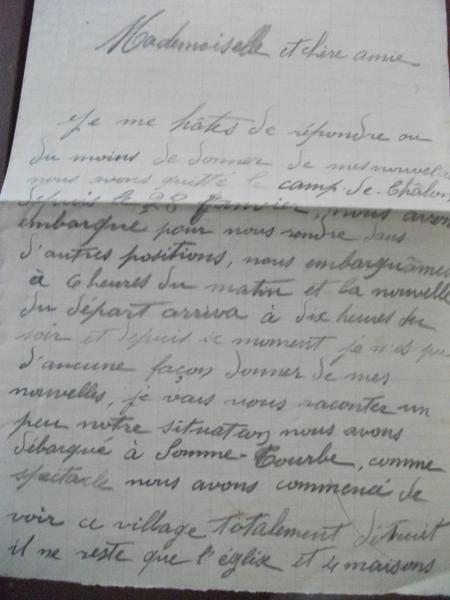 Mademoiselle et chère amie
Je me hâtes de répondre ou
du moins de donner de mes nouvel
nous avons quitté le camp-de-Châlon
depuis le 28 janvier, nous avons
embarqué pour nous rendre dans
d'autres positions, nous embarquâmes
à 6 heures du matin et la nouvelle
du départ arriva à dix heures du
soir et depuis ce moment je n'es pu
d'aucune façon donner de mes
nouvelles, je vais vous raconter un
peu notre situation, nous avons
débarqué à Somme-Tourbe, comme
spectacle nous avons commencé de
voir ce village totalement détruit
il ne reste que l'églix et 4 maisons